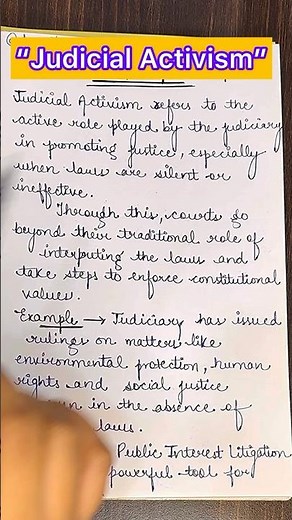 "Judicial Activism"
Judicial Activism refers to the
active role played by the judiciary
in promoting justice, especially
when laws are silent or
ineffective.
Through this, courts go
beyond their traditional role of
interpreting the laws and
take steps to enforce constitutional
values.
Example → Judiciary has issued
rulings on matters like
environmental protection, human
rights and social justice
in the absence of
laws.
Public Interest Litigation
powerful tool for